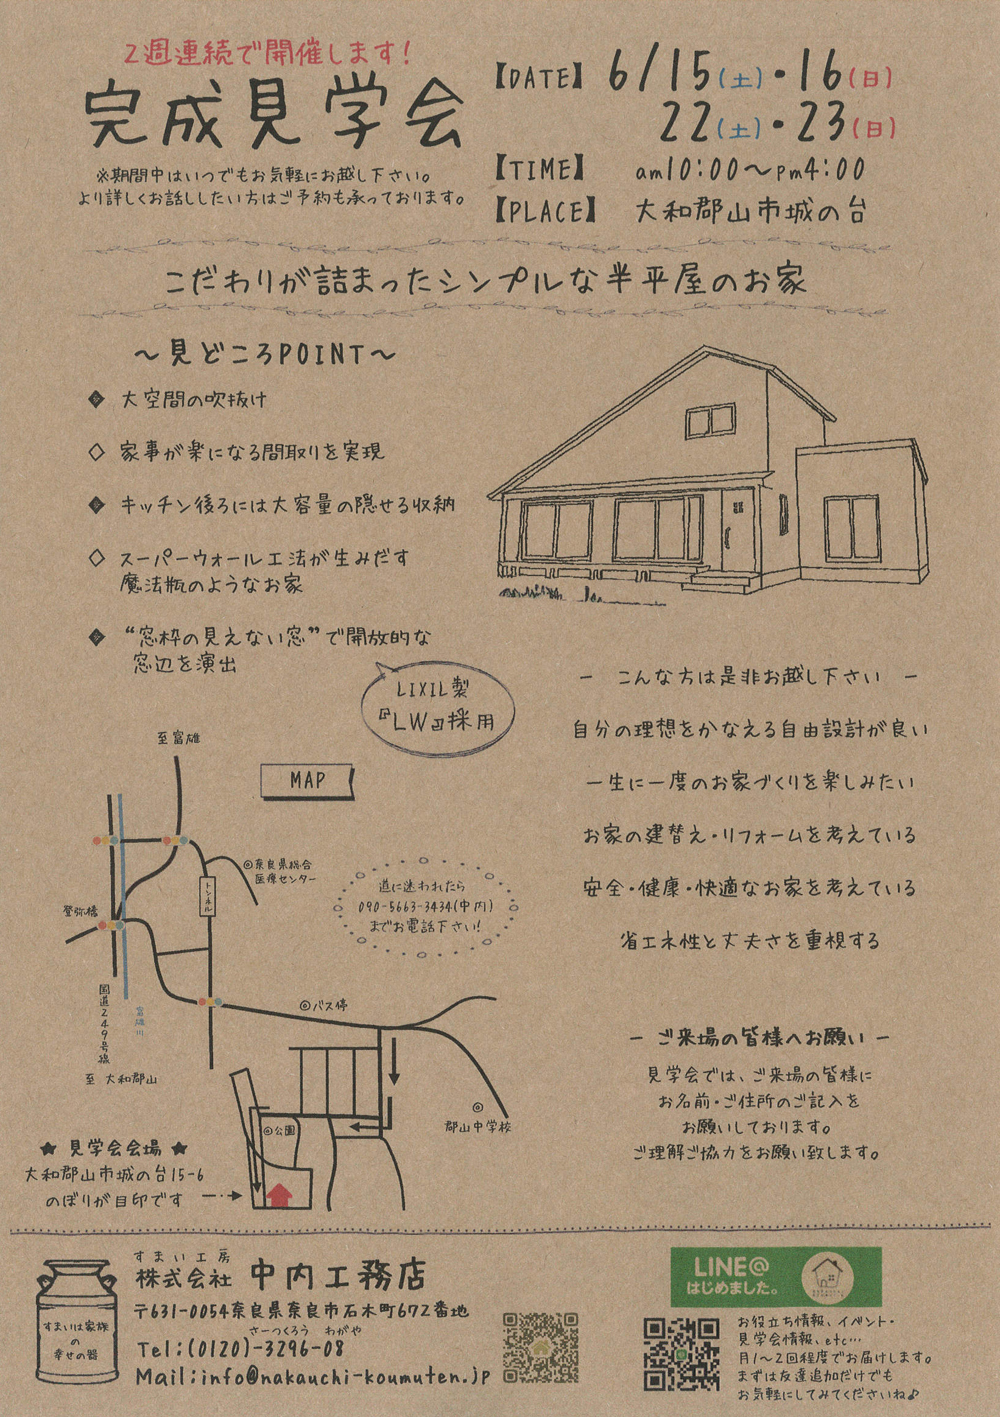 2週連続で開催します!
完成見学会
※期間中はいつでもお気軽にお越し下さい。
より詳しくお話ししたい方はご予約も承っております。
【DATE】 6/15(土)・16(日)
22(土)・23(日)
【TIME】 am10:00〜pm4:00
【PLACE】 大和郡山市城の台
こだわりが詰まったシンプルな半平屋のお家
〜見どころPOINT〜
大空間の吹抜け
家事が楽になる間取りを実現
キッチン後ろには大容量の隠せる収納
スーパーウォール工法が生みだす
魔法瓶のようなお家
“窓枠の見えない窓”で開放的な
窓辺を演出
LIXIL製
『LW』採用
ー こんな方は是非お越し下さい ー
自分の理想をかなえる自由設計が良い
一生に一度のお家づくりを楽しみたい
お家の建替え・リフォームを考えている
安全・健康・快適なお家を考えている
省エネ性と丈夫さを重視する
ー ご来場の皆様へお願い ー
見学会では、ご来場の皆様に
お名前・ご住所のご記入を
お願いしております。
ご理解ご協力をお願い致します。
MAP
至富雄
◎奈良県総合
医療センター
トンネル
登弥橋
国道249号線
富雄川
至 大和郡山
道に迷われたら
090-5663-3434(中内)
までお電話下さい!
◎バス停
◎
郡山中学校
◎公園
★ 見学会会場 ★
大和郡山市城の台15-6
のぼりが目印です
すまいは家族
の
幸せの器
すまい工房
株式会社 中内工務店
〒631-0054奈良県奈良市石木町672番地
さーつくろう わがや
Tel:(0120)-3296-08
Mail:info@nakauchi-koumuten.jp
LINE@
はじめました。
お役立ち情報、イベント・
見学会情報、etc…
月1〜2回程度でお届けします。
まずは友達追加だけでも
お気軽にしてみてくださいね♪